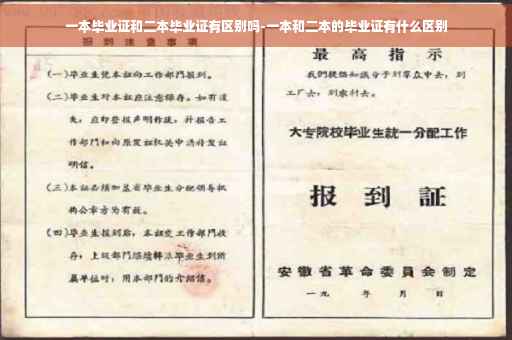 一本毕业证和二本毕业证有区别吗-一本和二本的毕业证有什么区别
报到注意事项
(一)毕业生凭本证向工作部门报到。
(二)毕业生对本证应注意保存。如有遗
失，应即登报声明作废，并报告工
作部门和向原发证机关申请补发证
明信。
(三)本证必须加盖省毕业生分配领导机
构公章方为有效。
(四)毕业生报到后，本证交工作部门收
存；上级部门
毕业生到所
属单位时，用本部门的介绍信。
最高指示
我们提倡知识分子到群众中去，到
工厂去，到农村去。
大专院校毕业生統一分配工作
报到証
安徽省革命委員会制定
一九 年 月 日